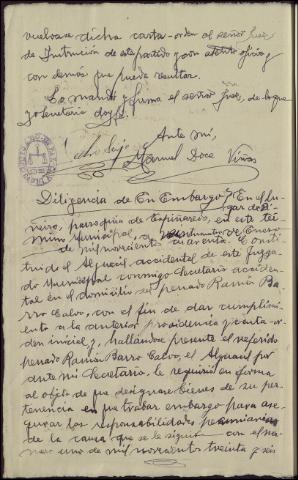 vuelvase dicha carta-orden al señor Juez
de Instrucción de este partido y con atento oficio y
con demas que pueda resultar.
Lo mandó y firma el señor Juez, de lo que
yo Secretario doy fé.
Ante mi,
Manuel Doce Viñas
Diligencia de En Embargo } En el Lu-
gar de
neiro, parroquia de en este ter-
mino Municipal, a de Enero
de mil novecientos cuarenta. Consti-
tuido el Alguacil accidental de este Juzga-
do Municipal conmigo Secretario acciden-
tal en el domicilio del penado Ramón Ba-
rro Calvo, con el fin de dar cumplimi-
ento a la anterior providencia y carta-or-
den inicial y hallandose presente el referido
penado Ramón Barro Calvo, el Alguacil por
ante mi Secretario, le requirió en forma
al objeto de que designare bienes de su per-
tenencia en que trabar embargo para ase-
gurar las responsabilidades pecuniarias
de la causa que se le siguió con el nú-
mero uno de mil novecientos treinta y seis